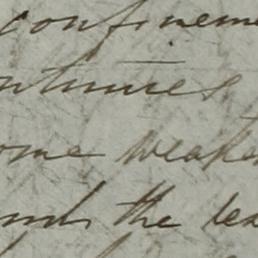 confinem
ntinues
ome weake
and the